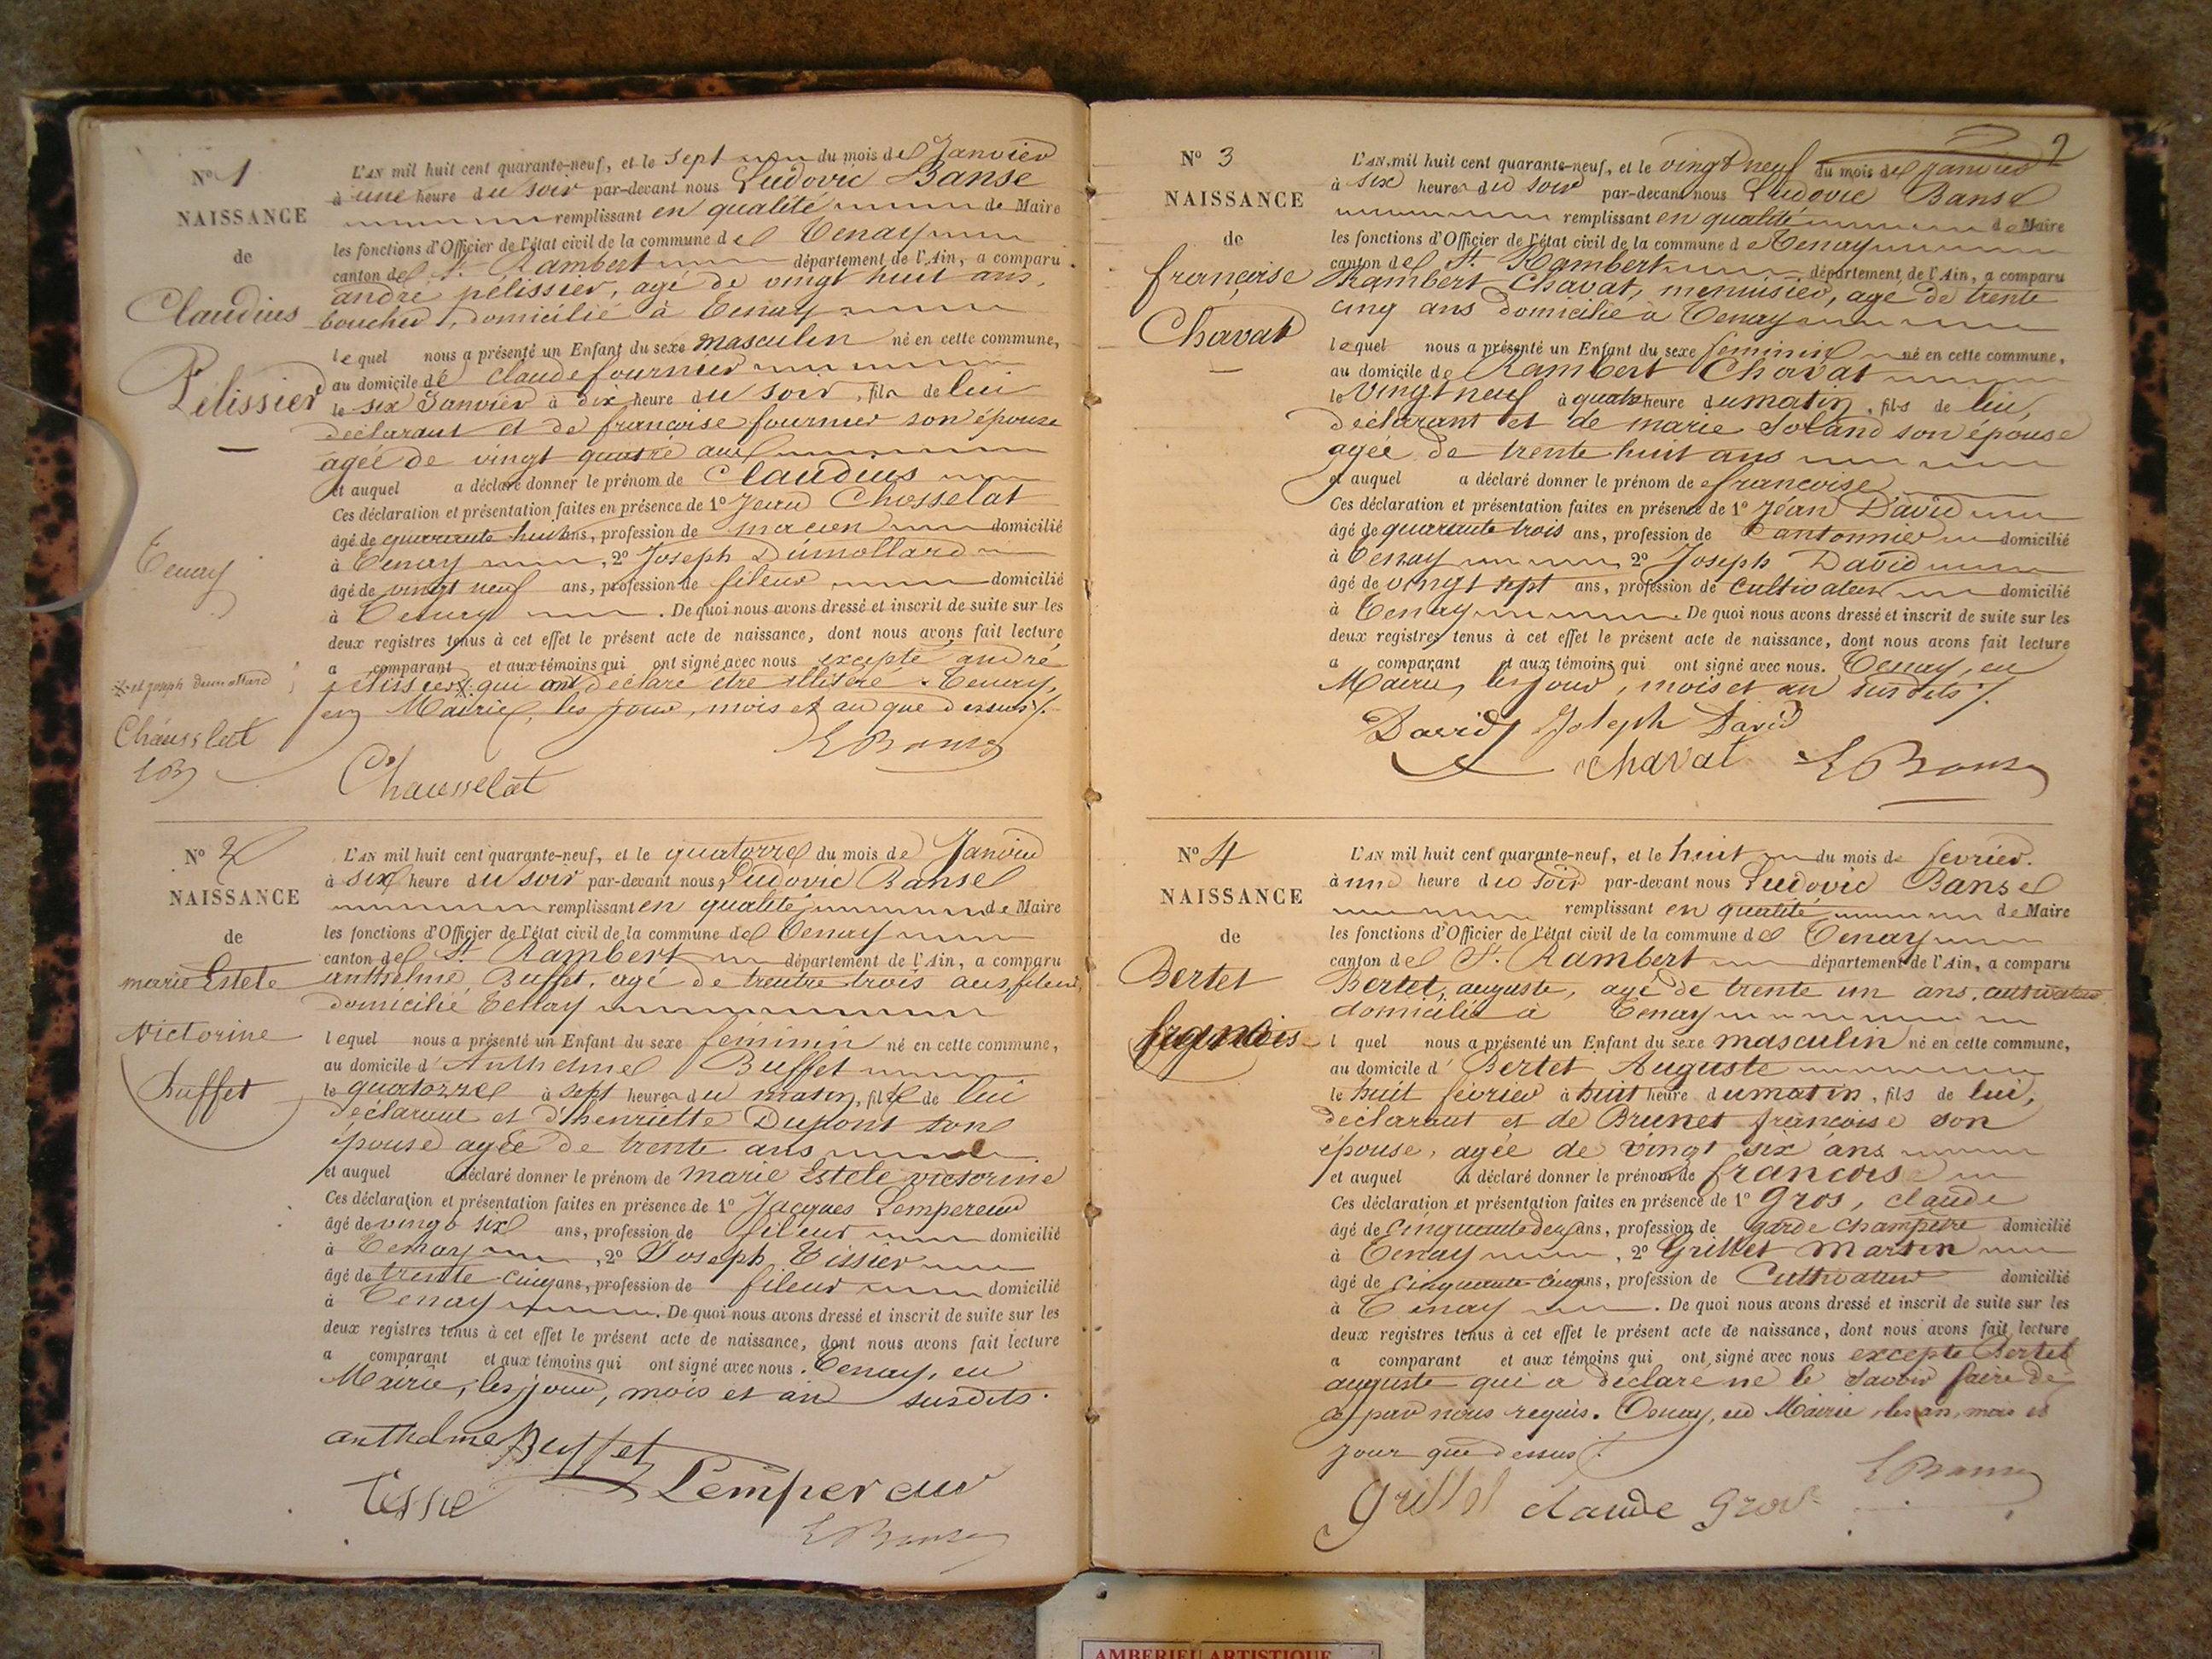 N° 1
NAISSANCE
de
Claudius
Pélissier
Tenay
et joseph dumollard
Chausselat
LB
L'AN mil huit cent quarante-neuf, et le sept du mois de Janvier
à une heure du soir par-devant nous Ludovic Banse
remplissant en qualité de Maire
les fonctions d'Officier de l'état civil de la commune de Tenay
canton de St. Rambert département de l'Ain, a comparu
andré pélissier, agé de vingt huit ans,
boucher, domicilié à Tenay
lequel nous a présenté un Enfant du sexe masculin né en cette commune,
au domicile de claude fournier
le six Janvier à dix heure du soir, fils de lui
déclarant et de francoise fournier son épouse
agée de vingt quatre ans
et auquel a déclaré donner le prénom de Claudius
Ces déclaration et présentation faites en présence de 1° Jean Chosselat
âgé de quarante huit ans, profession de macon domicilié
à Tenay, 2° Joseph Dumollard
âgé de vingt neuf ans, profession de fileur domicilié
à Tenay. De quoi nous avons dressé et inscrit de suite sur les
deux registres tenus à cet effet le présent acte de naissance, dont nous avons fait lecture
a comparant et aux témoins qui ont signé avec nous excepté andré
pélissier qui ont déclaré etre illiseré. Tenay,
en Mairie, les jour, mois et an que dessus %.
Chausselat
N° 2
NAISSANCE
de
marie Estele
Victorine
Buffet
L'AN mil huit cent quarante-neuf, et le quatorze du mois de Janvier
à six heure du soir par-devant nous, Ludovic Banse
remplissant en qualité de Maire
les fonctions d'Officier de l'état civil de la commune de Tenay
canton de St Rambert département de l'Ain, a comparu
anthelme Buffet, agé de trentre trois ans, fileur,
domicilié Tenay
lequel nous a présenté un Enfant du sexe féminin né en cette commune,
au domicile d'Anthelme Buffet
le quatorze à sept heures du matin, fille de lui
déclarant et d'henriette Dupont son
épouse agée de trente ans
et auquel a déclaré donner le prénom de marie Estele victorine
Ces déclaration et présentation faites en présence de 1° Jacques Lempereur
âgé de vingt six ans, profession de fileur domicilié
à Tenay, 2° Joseph Tissier
âgé de trente-cinq ans, profession de fileur domicilié
à Tenay. De quoi nous avons dressé et inscrit de suite sur les
deux registres tenus à cet effet le présent acte de naissance, dont nous avons fait lecture
a comparant et aux témoins qui ont signé avec nous. Tenay, en
Mairie, les jour, mois et an susdits.
anthelme Buffet
Lempereur
N° 3
NAISSANCE
de
françoise
Chavat
2
L'AN mil huit cent quarante-neuf, et le vingt neuf du mois de janvier
à six heures du soir par-devant nous Ludovic Banse
remplissant en qualité de Maire
les fonctions d'Officier de l'état civil de la commune de Tenay
canton de St. Rambert département de l'Ain, a comparu
Rambert Chavat, menuisier, agé de trente
cinq ans domicilié à Tenay
lequel nous a présenté un Enfant du sexe féminin né en cette commune,
au domicile de Rambert Chavat
le vingt neuf à quatre heure du matin, fils de lui,
déclarant et de marie Soland son épouse
agée de trente huit ans
et auquel a déclaré donner le prénom de francoise
Ces déclaration et présentation faites en présence de 1° Jéan David
âgé de quarante trois ans, profession de Cantonnier domicilié
à Tenay 2° Joseph David
âgé de vingt sept ans, profession de cultivateur domicilié
à Tenay. De quoi nous avons dressé et inscrit de suite sur les
deux registres tenus à cet effet le présent acte de naissance, dont nous avons fait lecture
a comparant et aux témoins qui ont signé avec nous. Tenay, en
Mairie, les jour, mois et an susdits %.
David Joseph David
Chavat
N° 4
NAISSANCE
de
Bertet
francois
L'AN mil huit cent quarante-neuf, et le huit du mois de fevrier.
à une heure du soir par-devant nous Ludovic Banse
remplissant en qualité de Maire
les fonctions d'Officier de l'état civil de la commune de Tenay
canton de St. Rambert département de l'Ain, a comparu
Bertet, auguste, agé de trente un ans, cultivateur
domicilié à Tenay
l quel nous a présenté un Enfant du sexe masculin né en cette commune,
au domicile d' Bertet Auguste
le huit février à huit heure du matin, fils de lui,
déclarant et de Brunet francoise son
épouse, agée de vingt six ans
et auquel a déclaré donner le prénom de francois
Ces déclaration et présentation faites en présence de 1° Gros, claude
âgé de cinquante deux ans, profession de garde champêtre domicilié
à Tenay, 2° Grillet Martin
âgé de cinquante-cinq ans, profession de Cultivateur domicilié
à Tenay. De quoi nous avons dressé et inscrit de suite sur les
deux registres tenus à cet effet le présent acte de naissance, dont nous avons fait lecture
a comparant et aux témoins qui ont signé avec nous excepté Bertet
auguste qui a déclaré ne le savoir faire de
ce par nous requis. Tenay, en Mairie, les an, mois et
jour que dessus %.
Grillet claude Gros
AMBERIEU ARTISTIQUE